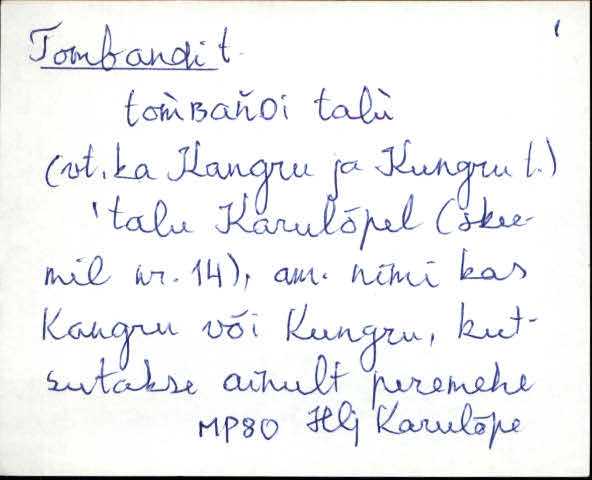 1
Tombandi t.
tom̀ʙan̆ᴅi talù
(vt. ka Kangru ja Kungru t.)
'talu Karulõpel (skee-
mil nr. 14), am. nimi kas
Kangru või Kungru, kut-
sutakse ainult peremehe
MP80 Hlj Karulõpe